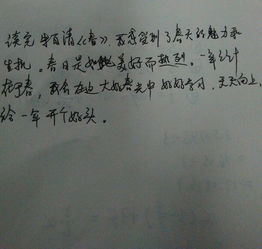 读完朱自清《春》，我感受到了春天的魅力和
生机。春日是如此美好而热烈，一年之计
在于春，我会在这大好春光中好好学习，天天向上，
给一年开个好头。